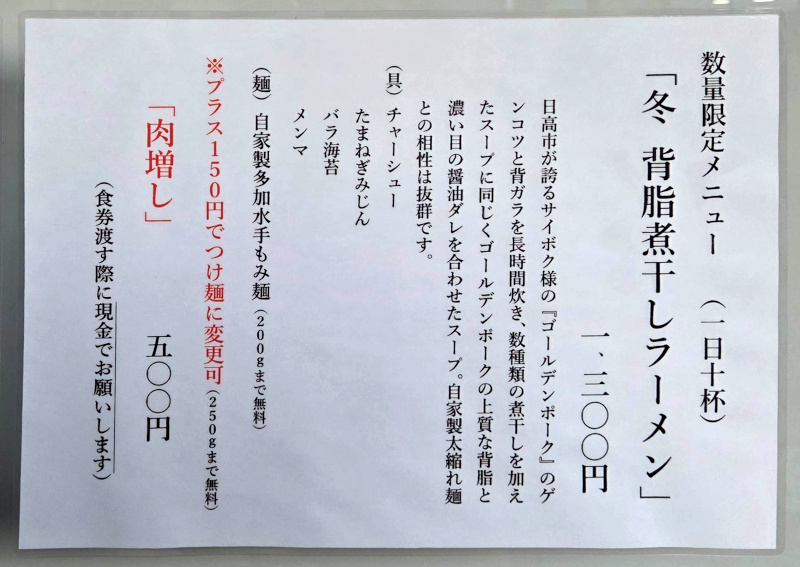 数量限定メニュー （一日十杯）
「冬 背脂煮干しラーメン」
一、三〇〇円
日高市が誇るサイボク様の『ゴールデンポーク』のゲ
ンコツと背ガラを長時間炊き、数種類の煮干しを加え
たスープに同じくゴールデンポークの上質な背脂と
濃い目の醤油ダレを合わせたスープ。自家製太縮れ麺
との相性は抜群です。
（具）チャーシュー
たまねぎみじん
バラ海苔
メンマ
（麺）自家製多加水手もみ麺（200gまで無料）
※プラス150円でつけ麺に変更可（250gまで無料）
「肉増し」 五〇〇円
（食券渡す際に現金でお願いします）